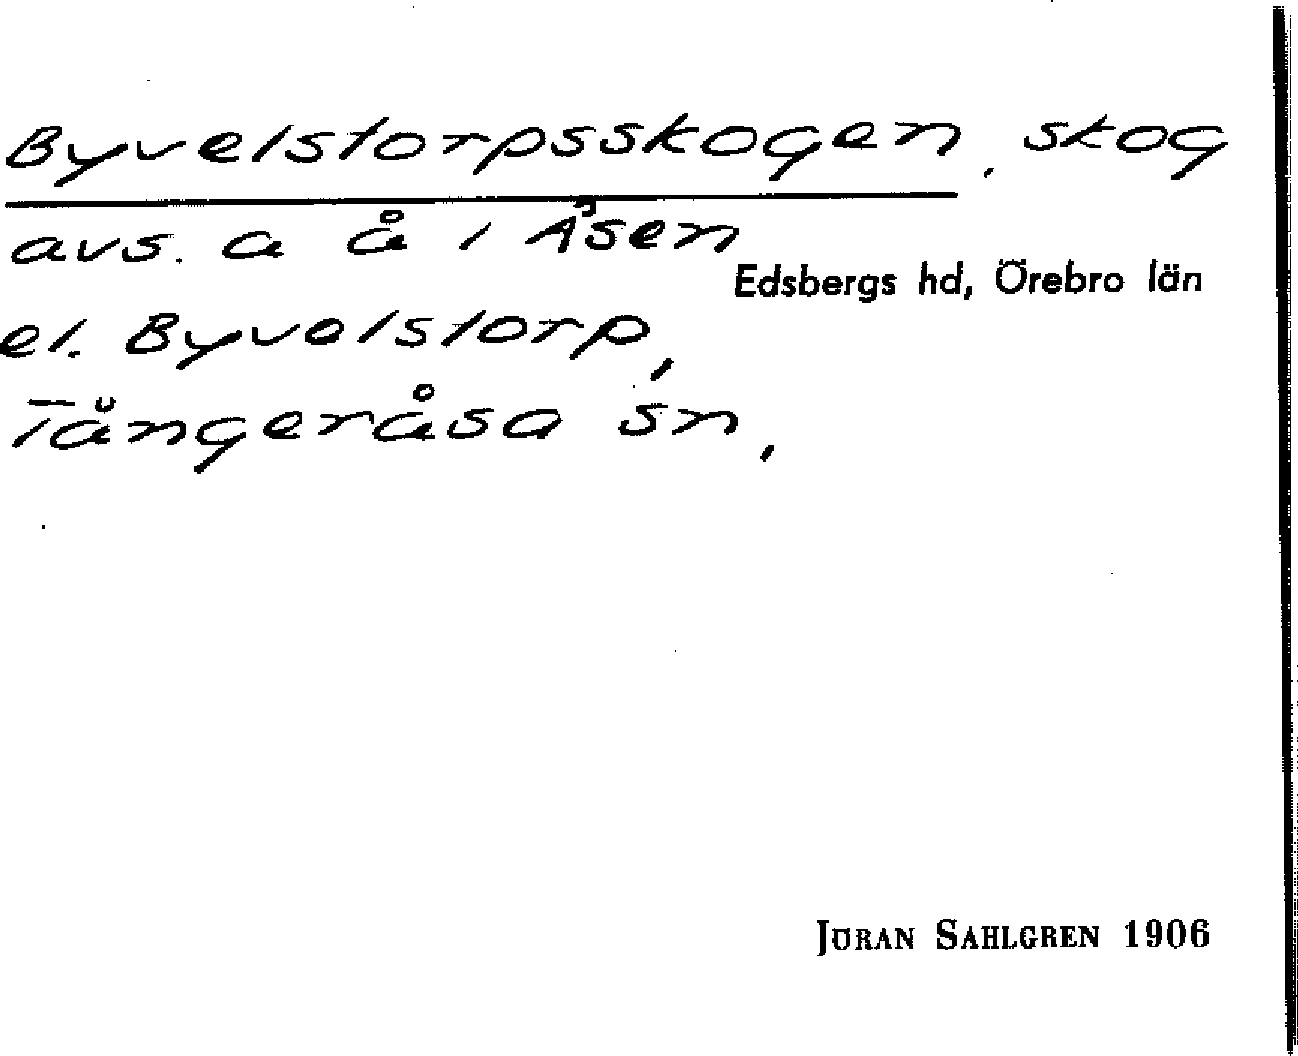 Byvelstorpsskogen, skog
avs. a å i Åsen
Edsbergs hd, Örebro län
el. Byvelstorp,
Tångeråsa sn,
JÖRAN SAHLGREN 1906